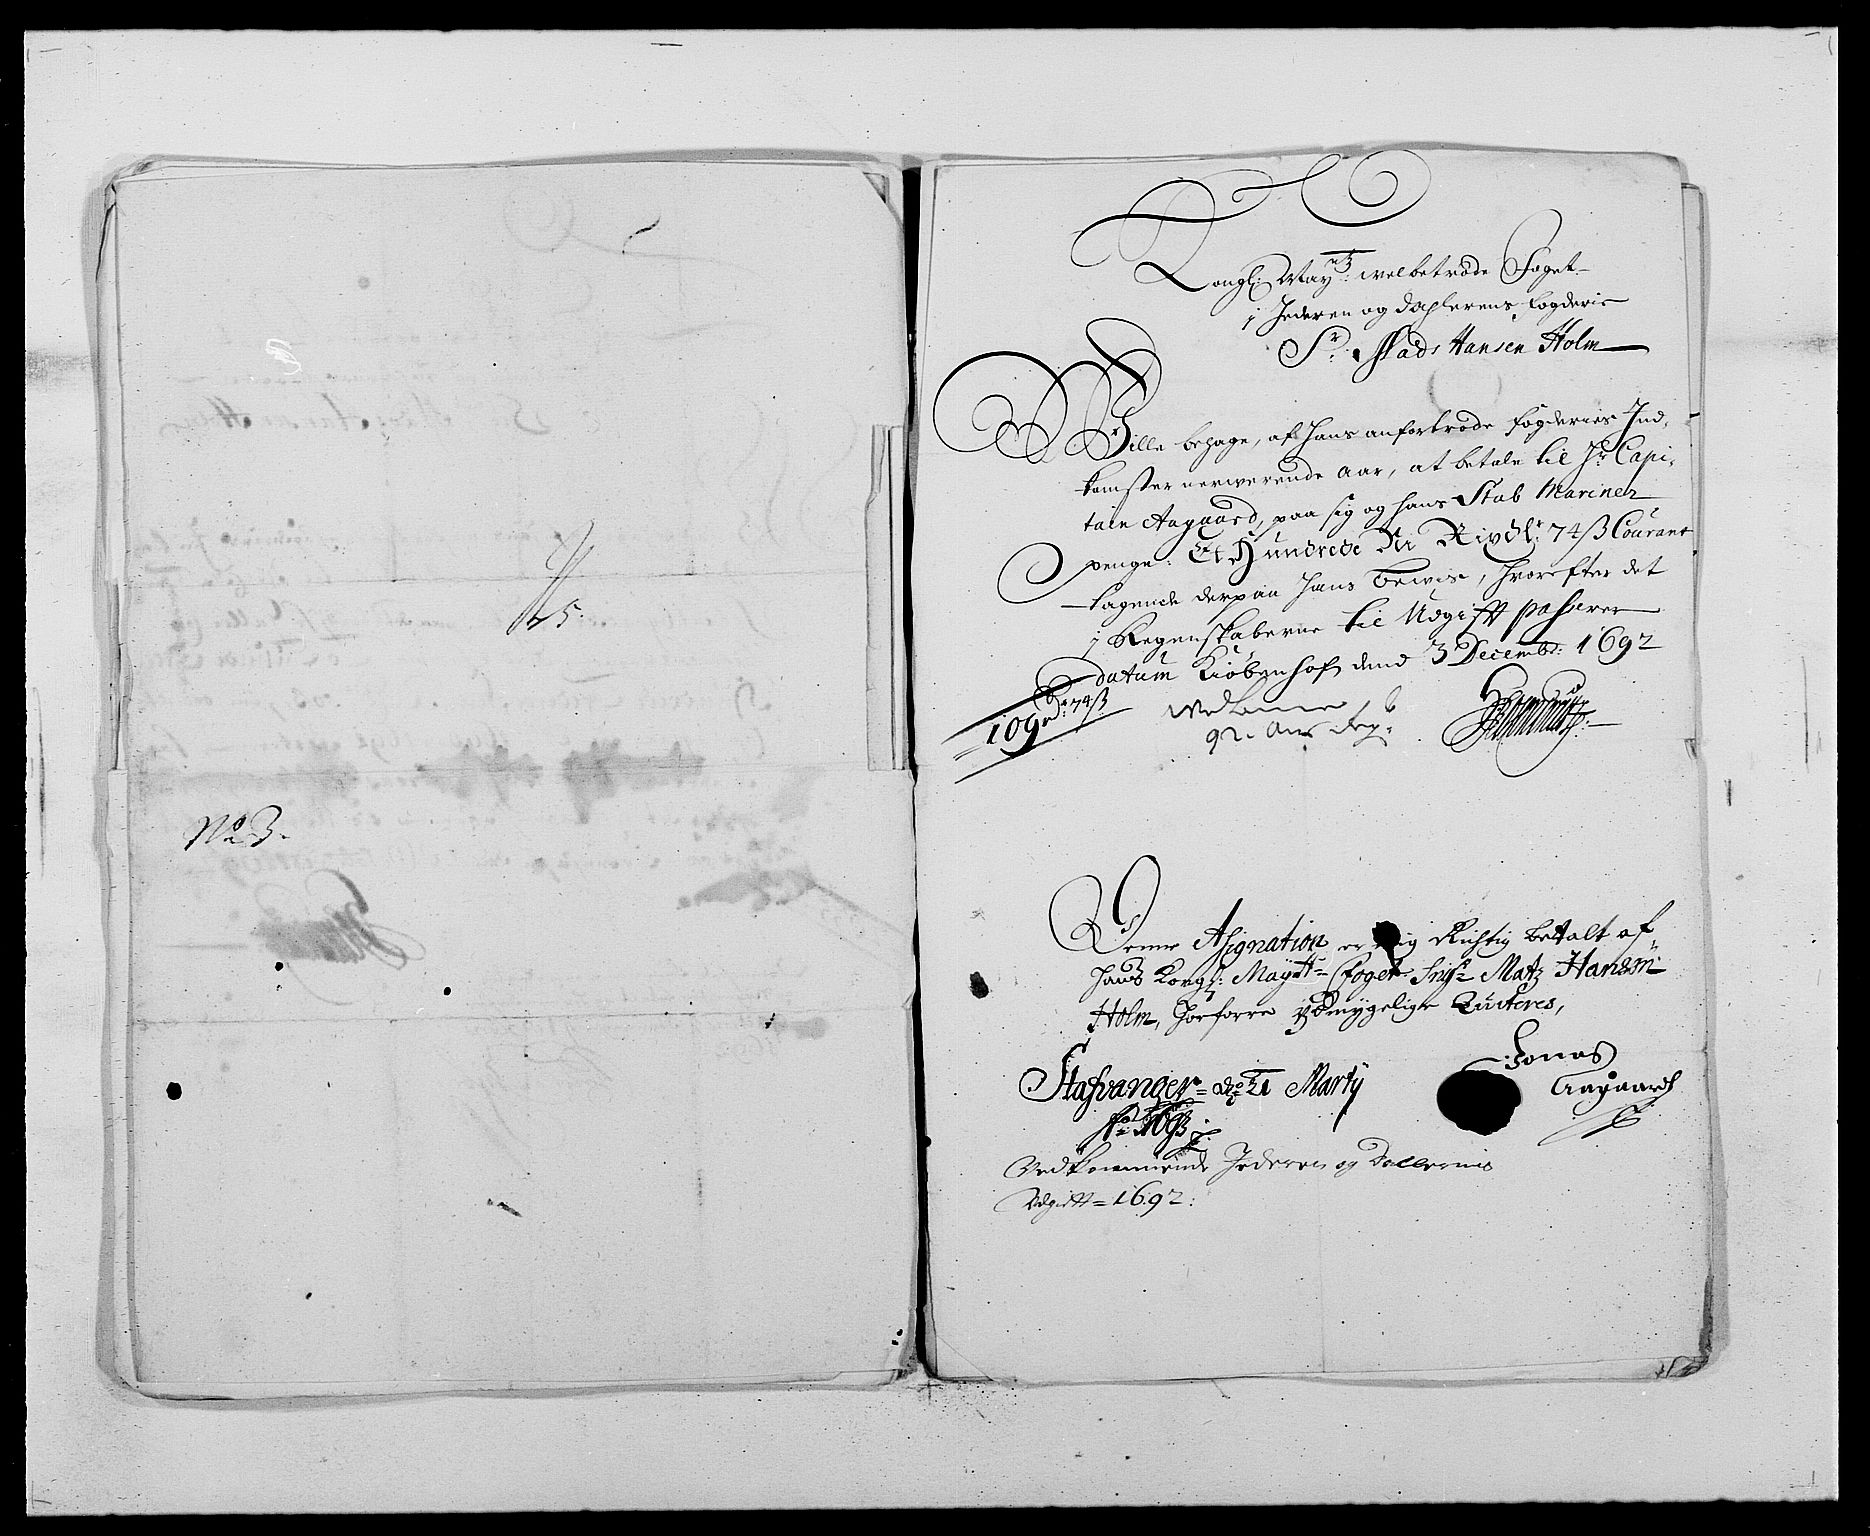 No 3.
45.
Kongl: May:tz welbetrode Foget
i Jederen og Dahlerens fogderie
Sr. Mads Hansen Holm
Wille behage, af hans anfortrode fogderies Ind-
komster nerwerende aar, at betale til Hr Capi-
tain Aagaard, paa sig og hans Stab Mariner
penge: Et Hundrede Ni Rixdl: 74 ß Courant
tagende derpaa hans bewis, hworefter det
i Regenskaberne til Udgifft passerer
datum Kiøbenhafn dend 3 Decembr: 1692
109 rdr 74 ß
Denne Assignation er mig Richtig betalt af
hans Kongl: Mayt Foget Sigr Matz Hansøn
Holm, hworforre ydmygeligst Quiteres,
Stafvanger d. 21 Marty
Ao 1693
Jonas
Aagaardt
Vedkommende Jederen og Dallernis
Udgift 1692: